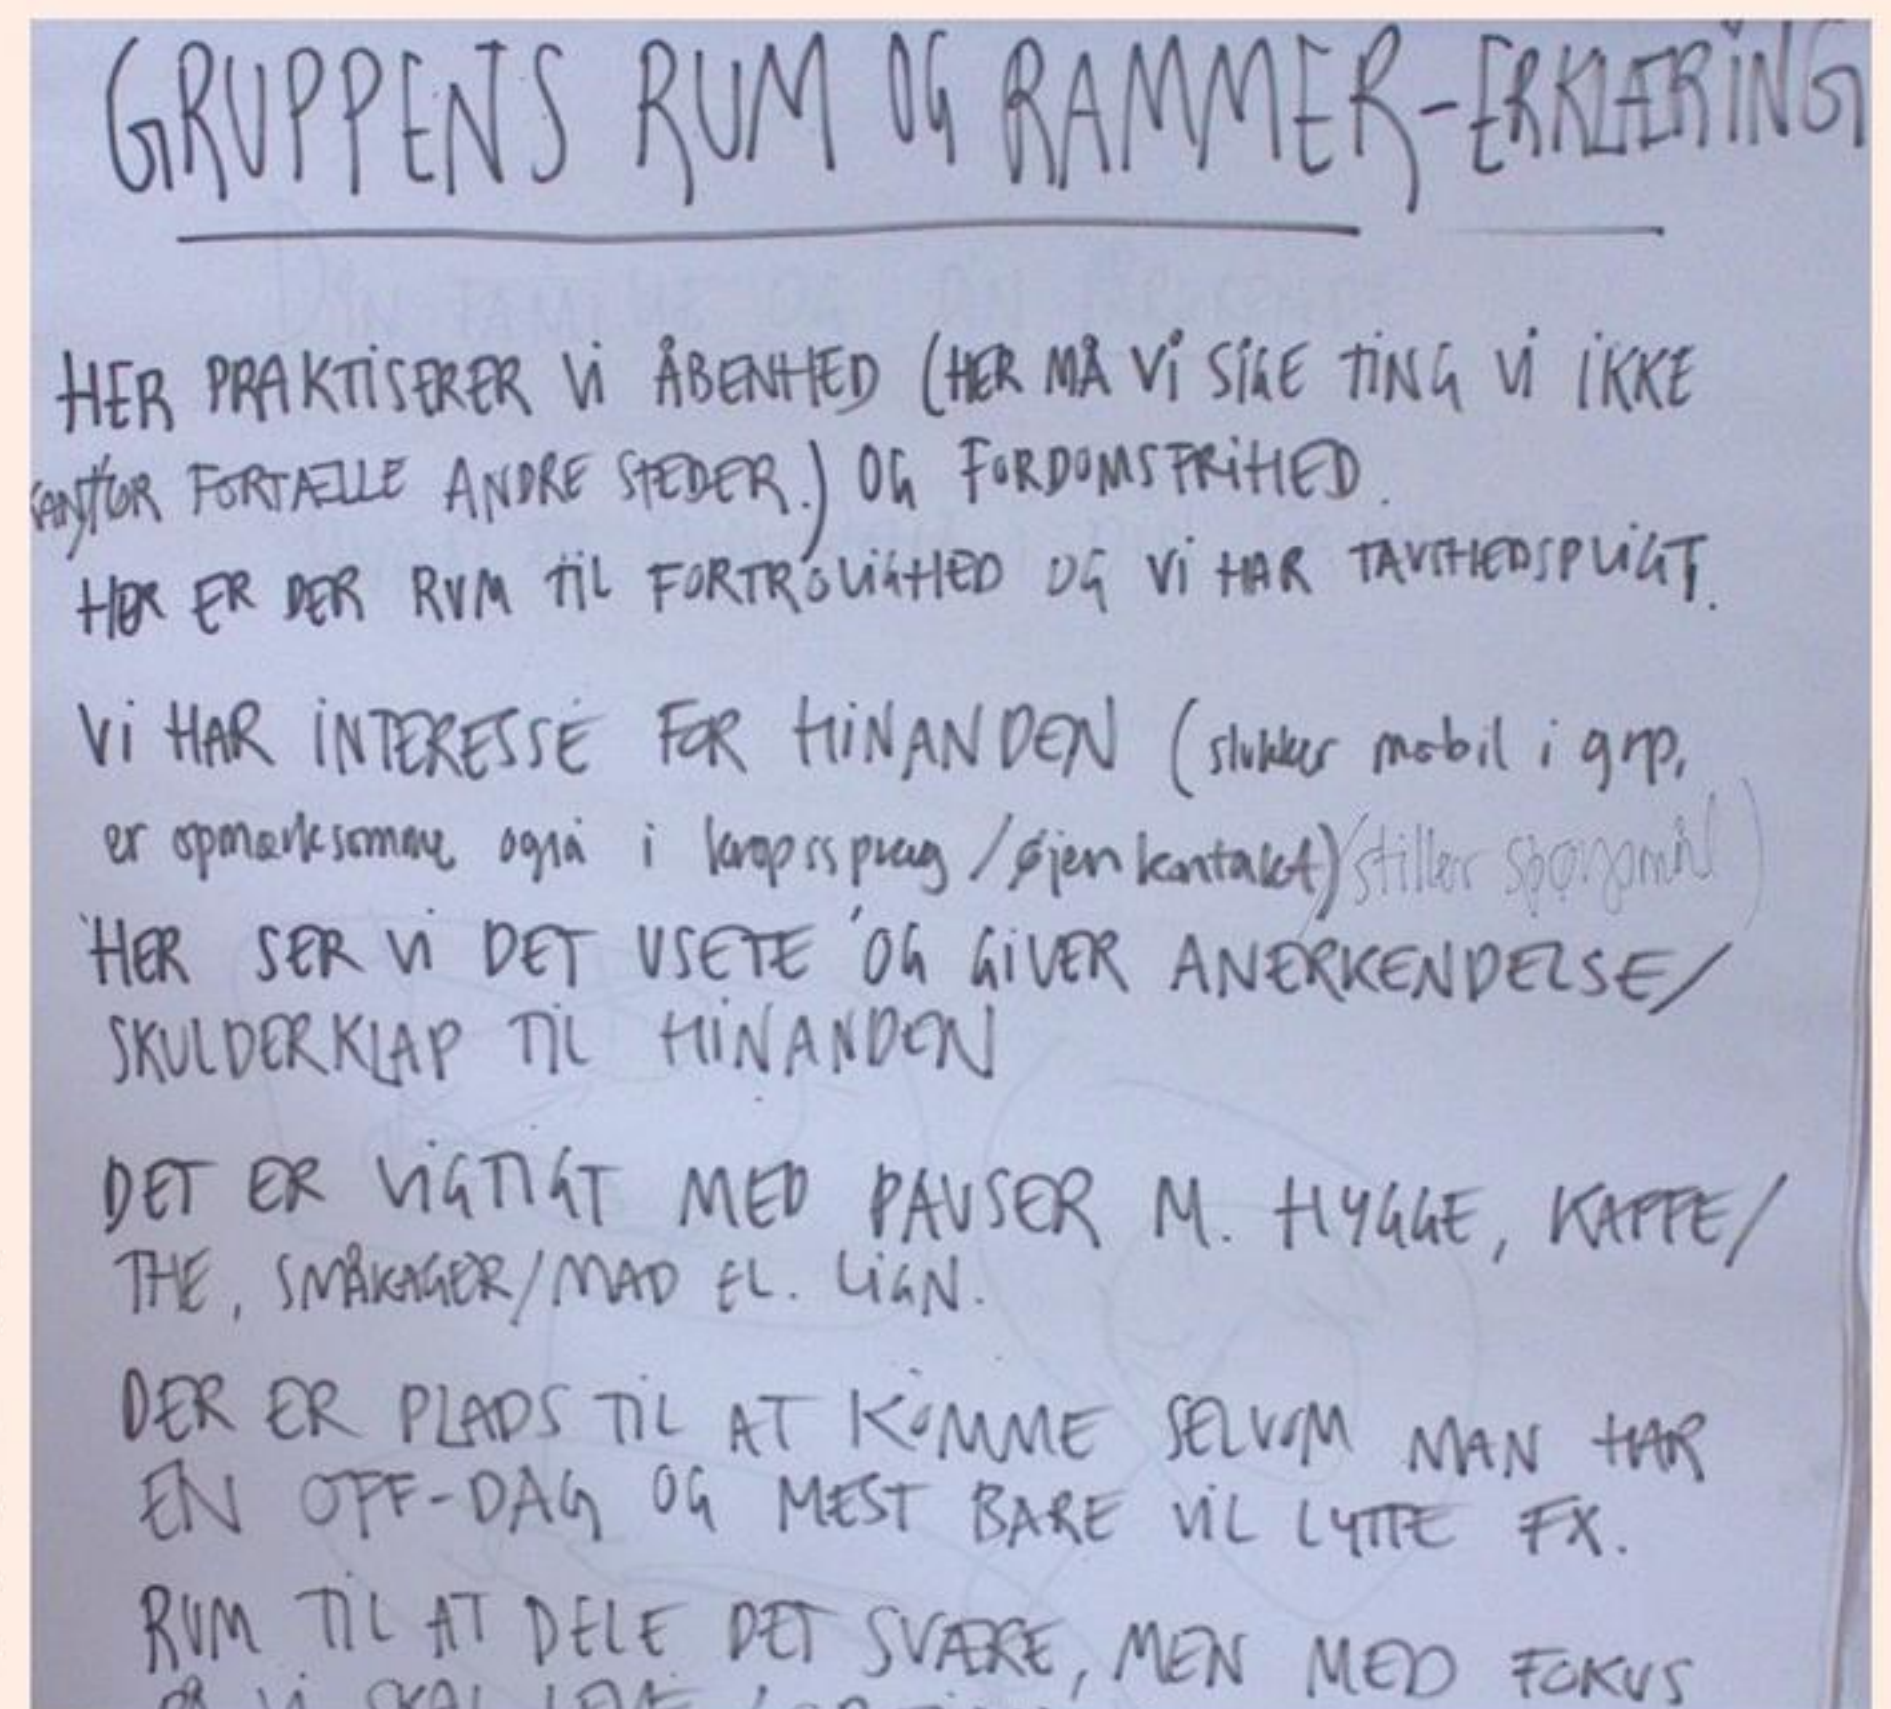 GRUPPENS RUM OG RAMMER-ERKLÆRING
HER PRAKTISERER Vi ÅBENHED (HER MÅ Vi SIGE TING Vi IKKE
KAN/TØR FORTÆLLE ANDRE STEDER.) OG FORDOMSFRIHED.
HER ER DER RUM TIL FORTROLIGHED OG Vi HAR TAVSHEDSPLIGT.
Vi HAR INTERESSE FOR HINANDEN (slukker mobil i grp,
er opmærksomme også i kropssprog / øjenkontakt) (stiller spørgsmål)
HER SER Vi DET USETE OG GIVER ANERKENDELSE/
SKULDERKLAP TIL HINANDEN
DET ER VIGTIGT MED PAUSER M. HYGGE, KAFFE/
THE, SMÅKAGER/MAD EL. LIGN.
DER ER PLADS TIL AT KOMME SELVOM MAN HAR
EN OFF-DAG OG MEST BARE VIL LYTTE FX.
RUM TIL AT DELE DET SVÆRE, MEN MED FOKUS
PÅ Vi SKAL